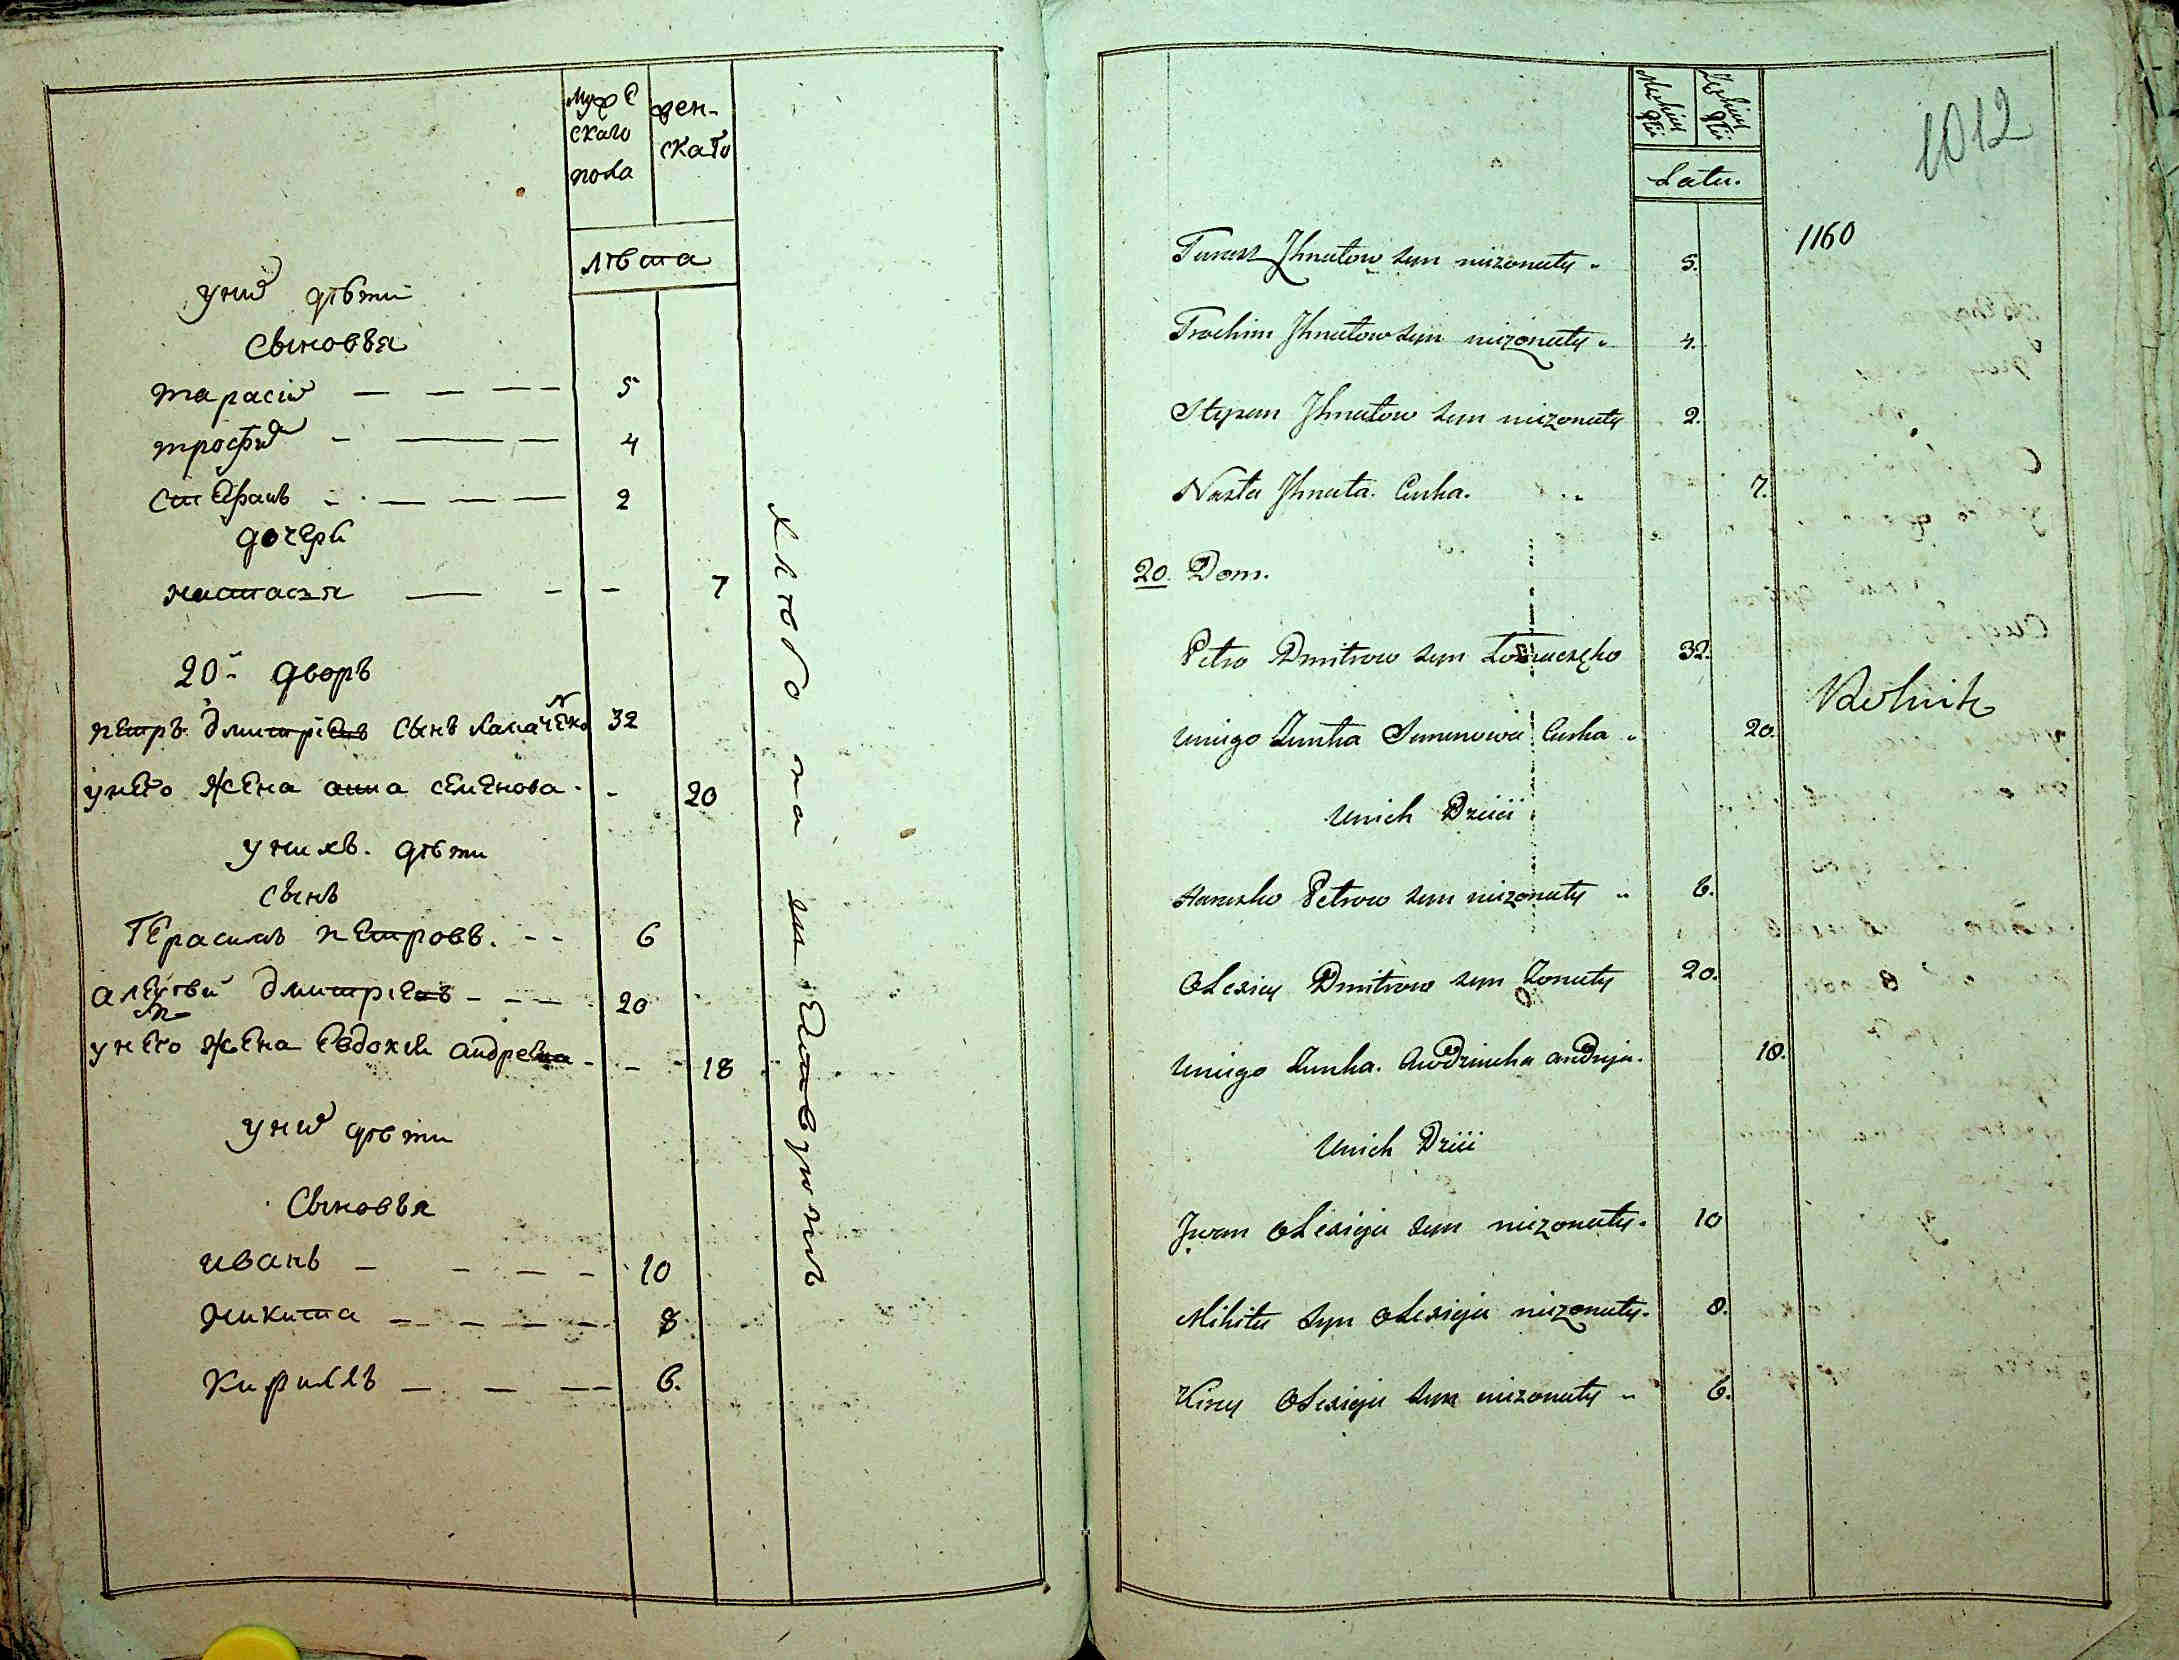 мужескаго пола
женскаго
лѣта
у них дѣти
сыновья
тарасій 5
трофим 4
стефанъ 2
дочерь
настасья 7
20й дворъ
петръ дмитріевъ сынъ ламаченко 32
у него жена анна семенова 20
у нихъ дѣти
сынъ
герасимъ петровъ 6
алексѣй дмитріевъ 20
у него жена евдокія андреева 18
у них дѣти
сыновья
иванъ 10
никита 8
кириллъ 6.
1012
Latu.
1160
Taras Jhnatow syn niezonaty 5.
Trochim Jhnatow syn niezonaty 4.
Stepan Jhnatow syn niezonaty 2.
Nasta Jhnata Curka. 7.
20. Dom.
Petro Dmitrow syn 32.
Rolnik
Uniego Zunka Semenowa Curka 20.
Unich Dzieci
Harasko Petrow syn niezonaty 6.
Olexiey Dmitrow syn Zonaty 20.
Uniego Zunka. Awdziucha andreja. 18.
Unich Dzieci
Jwan Olexieja syn niezonaty. 10
Mikita syn Olexieja niezonaty. 8.
Kiry Olexieja syn niezonaty 6.